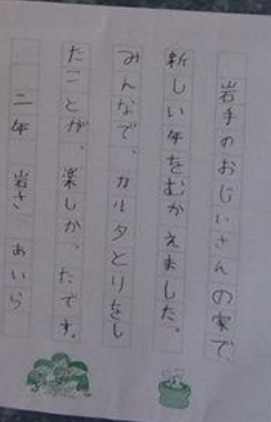 岩手のおじいさんの家で、
新しい年をむかえました。
みんなで、カルタとりをし
たことが、楽しかったです。
二年 岩さ あいら